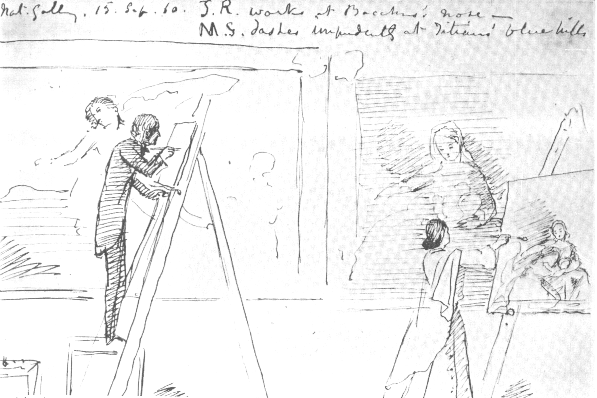 Nat: Gally. 15. Sep. 60. J.R. works at Bacchus's nose —
M.S. dashes impudently at Titian's blue hills